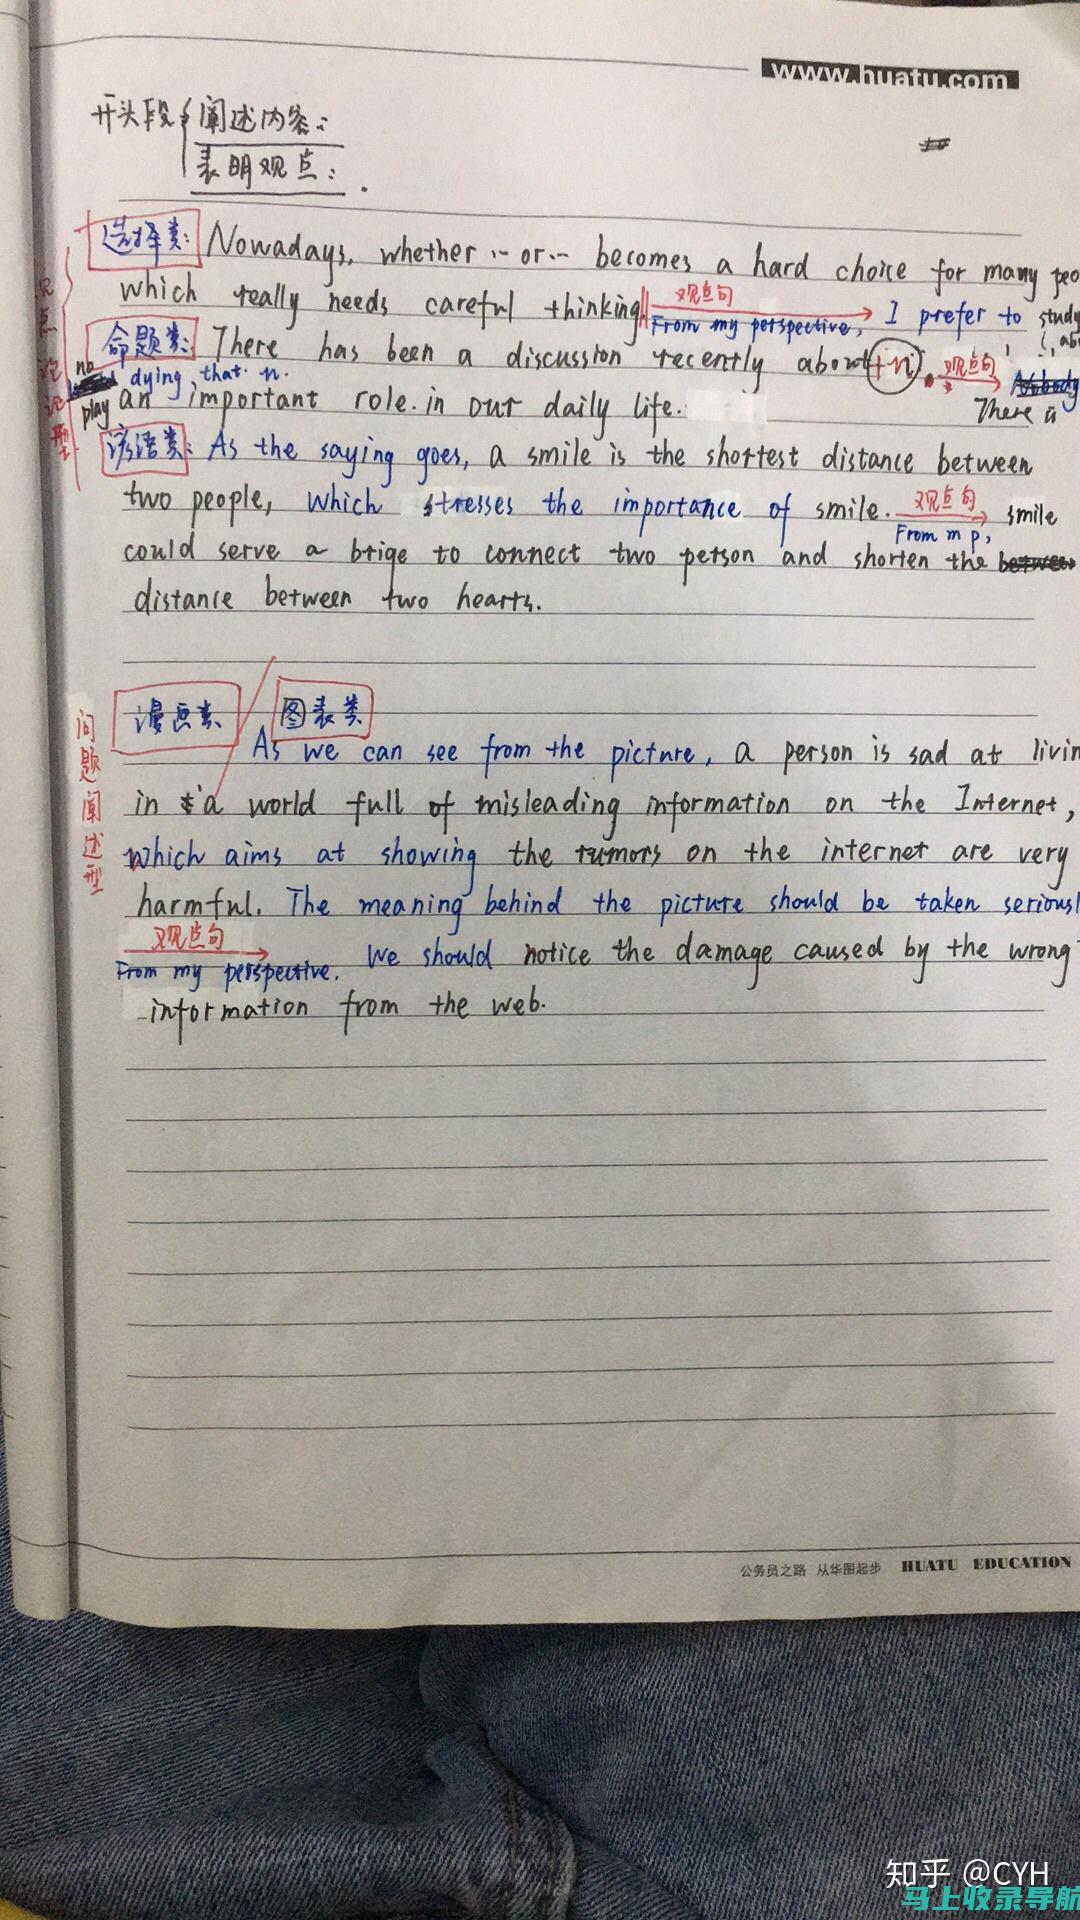 www.huatu.com
开头段 阐述内容:
表明观点:
选择类: Nowadays, whether ... or ... becomes a hard choice for many peo
which really needs careful thinking 观点句 From my perspective, I prefer to study
命题类: There has been a discussion recently about +n. 观点句
There is
no dying that n.
play an important role. in our daily life.
谚语类: As the saying goes, a smile is the shortest distance between
two people, which stresses the importance of smile. 观点句 From m p, smile
could serve a brige to connect two person and shorten the
distance between two hearts.
观点论证型
漫画类 图表类
As we can see from the picture, a person is sad at livin
in a world full of misleading information on the Internet,
which aims at showing the rumors on the internet are very
harmful. The meaning behind the picture should be taken seriousl
观点句
From my perspective. We should notice the damage caused by the wrong
information from the web.
问题阐述型
公务员之路 从华图起步 HUATU EDUCATION
知乎 @CYH
马上收录导航